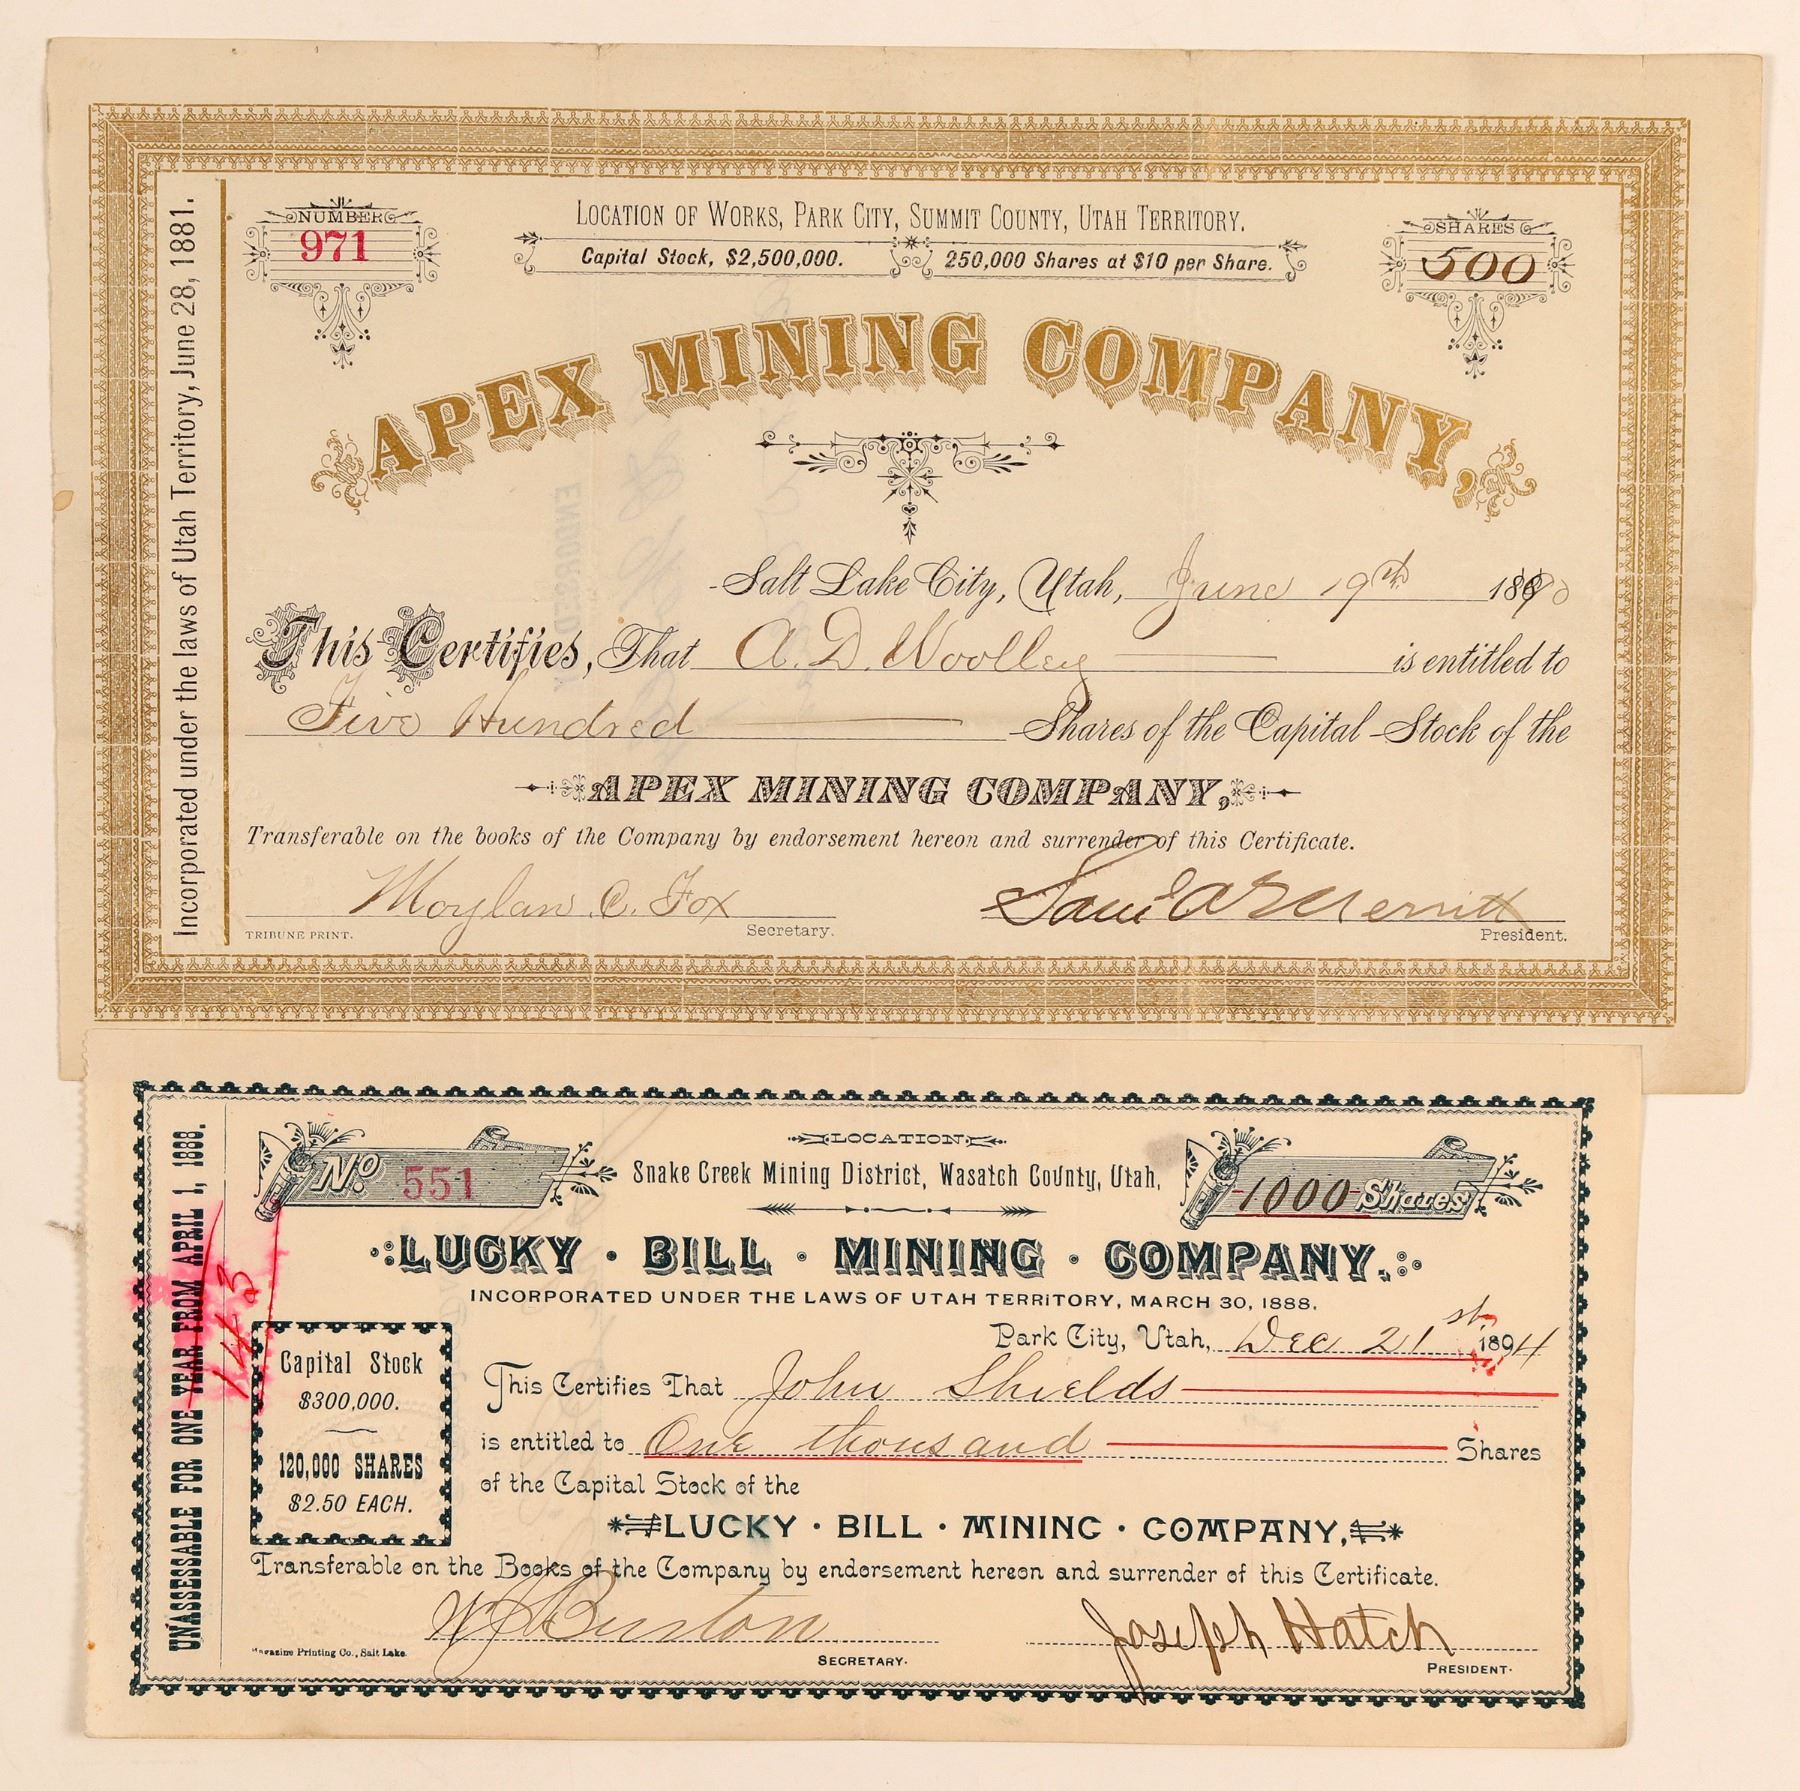 Incorporated under the laws of Utah Territory, June 28, 1881.
NUMBER
971
LOCATION OF WORKS, PARK CITY, SUMMIT COUNTY, UTAH TERRITORY.
Capital Stock, $2,500,000. 250,000 Shares at $10 per Share.
SHARES
500
APEX MINING COMPANY,
ENDORSED
Salt Lake City, Utah, June 19th 1890
This Certifies, That A. D. Woolley is entitled to
Five Hundred Shares of the Capital Stock of the
APEX MINING COMPANY,
Transferable on the books of the Company by endorsement hereon and surrender of this Certificate.
Moylan C. Fox
Merritt
TRIBUNE PRINT. Secretary. President.
UNASSESSABLE FOR ONE YEAR FROM APRIL 1, 1888.
143
No. 551
LOCATION
Snake Creek Mining District, Wasatch County, Utah,
1000 Shares
LUCKY · BILL · MINING · COMPANY.
INCORPORATED UNDER THE LAWS OF UTAH TERRITORY, MARCH 30, 1888.
Park City, Utah, Dec 21st 1894
Capital Stock
$300,000.
120,000 SHARES
$2.50 EACH.
This Certifies That John Shields
is entitled to One thousand Shares
of the Capital Stock of the
LUCKY · BILL · MINING · COMPANY,
Transferable on the Books of the Company by endorsement hereon and surrender of this Certificate.
Joseph Hatch
Magazine Printing Co., Salt Lake. SECRETARY. PRESIDENT.